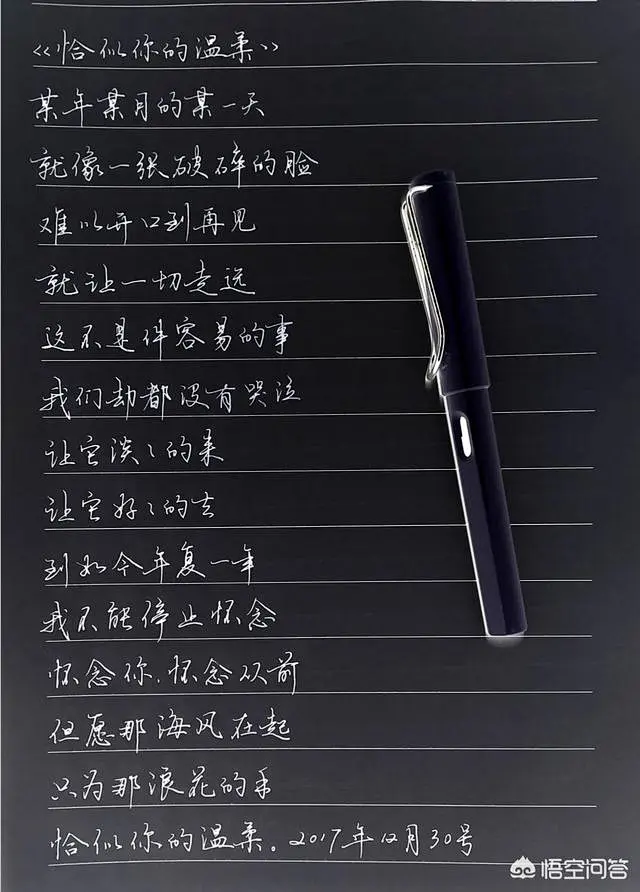 《恰似你的温柔》
某年某月的某一天
就像一张破碎的脸
难以开口到再见
就让一切走远
这不是件容易的事
我们劫都没有哭泣
让它淡々的来
让它好々的去
到如今年复一年
我不能停止怀念
怀念你.怀念从前
但愿那海风在起
只为那浪花的手
恰似你的温柔。2017年12月30号
悟空问答